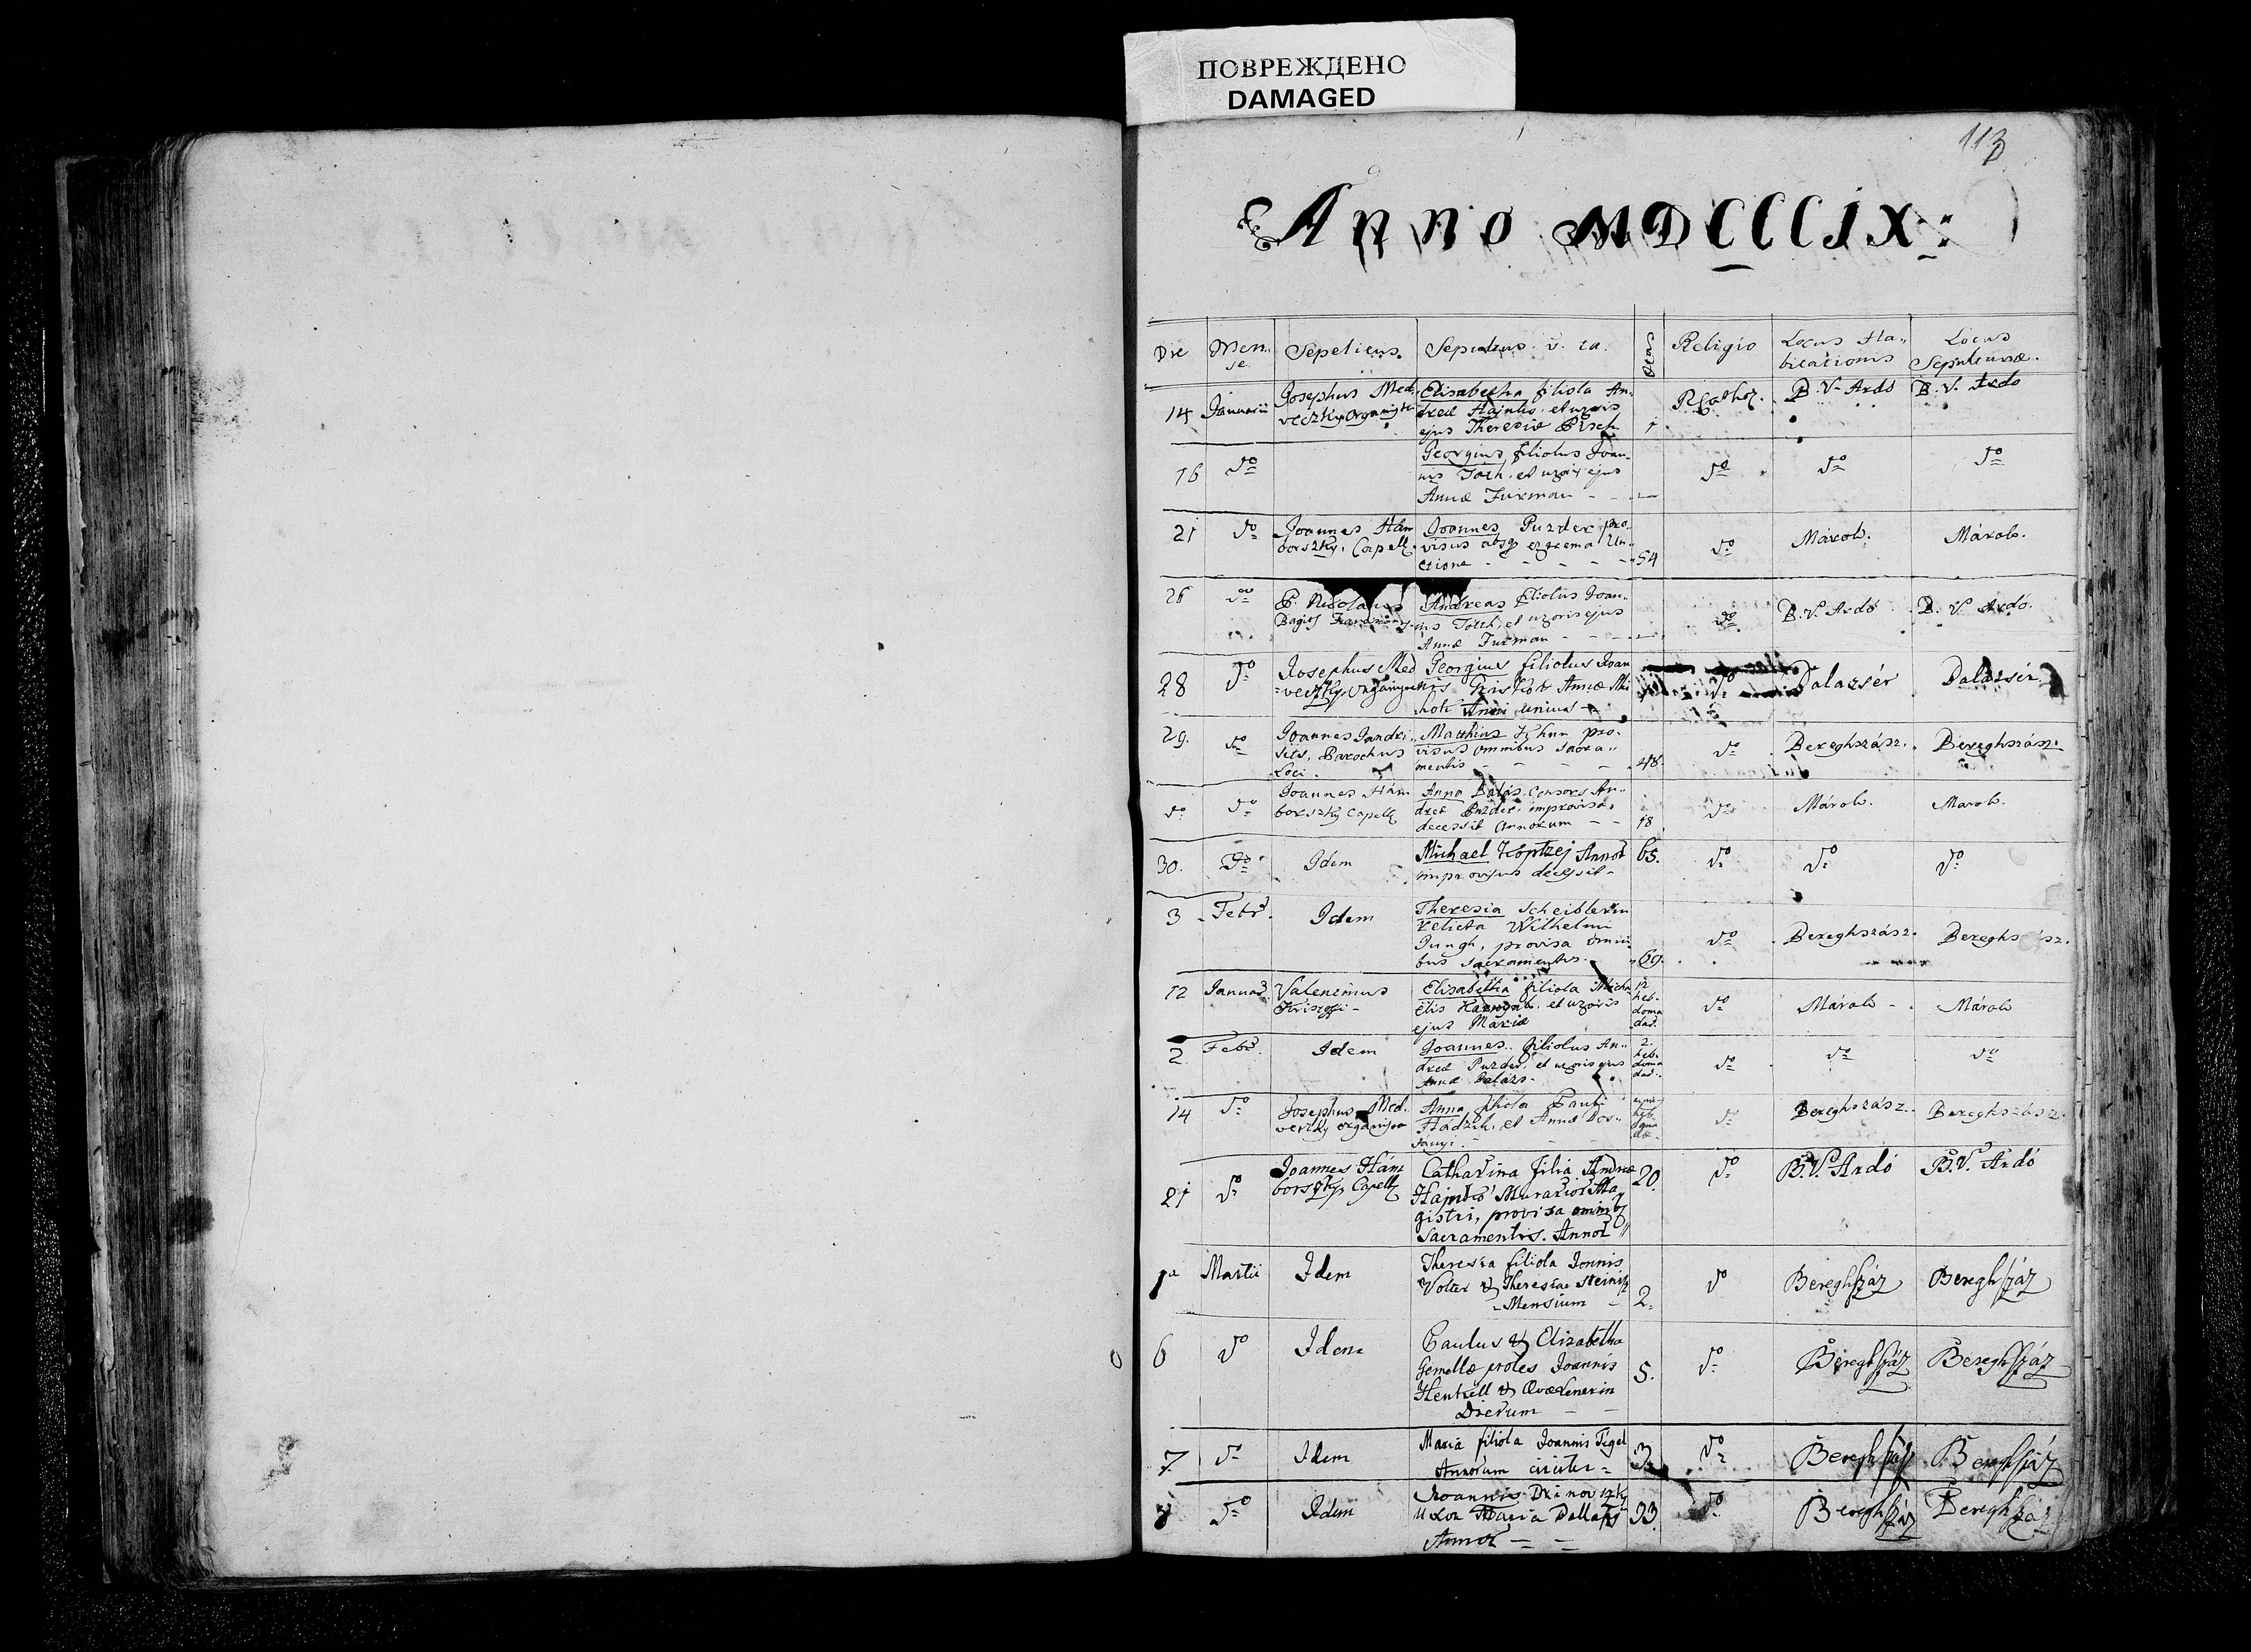 ПОВРЕЖДЕНО
DAMAGED
113
Anno MDCCCIX:
Die Mense Sepeliens. Sepultus. v. ta. Ætas Religio Locus Ha„bitationis Locus Sepulturæ.
14 Januarii Josephus Med„veczky Organista Elisabetha filiola An„dreæ Hajnko, et uxoris ejus Theresiæ Pisch 1 R. Cathol. B. V. Ardó B. V. Ardo
16 do Georgius filiolus Joan„nis Toth, et uxoris ejus Annæ Furman - - - do do do
21 do Joannes Hám„borszky, Capell. Joannes Puzder pro„visus absq extrema Un„ctione - - - - - 54 do Márok. Márok.
26 do P. Nicolaus Joannes filiolus
Andreas filiolus Joan„nis Toth, et uxoris ejus Annæ Furman - - - do B. V. Ardó B. V. Ardó.
28 do Josephus Med„veczky Organista Georgius filiolus Joan„nis Anni unius - do Dalazsér Dalazsér
29. do Joannes Jandri„sics, Parochus Loci. Matthias pro„visus omnibus Sacra„mentis - - - - 48. do Bereghszász. Bereghszász.
do do Joannes Hám„borszky Capell. Anna Balás, Consors An„dreæ Puzder, improvisa, decessit Annorum - - 18 do Márok. Marok.
30. do Idem Michael Annor improvisus decessit - 65. do do do
3 Febr. Idem Theresia Scheiblerin relicta Wilhelmi Jungh, provisa omni„bus Sacramentis - 69. do Bereghszász. Bereghszász.
12 Januar. Valentinus Elisabetha filiola Micha„elis et uxoris ejus Mariæ 12 heb„doma„dar. do Márok - Márok
2 Febr. Idem Joannes filiolus An„dreæ Puzder, et uxoris ejus Annæ Balázs. 2. heb„doma„dar. do do do
14 do Josephus Med„veczky organista Anna filiola Pauli et Annæ do Bereghszász. Bereghszász.
21 do Joannes Hám„borszky Capell Catharina filia Andreæ Hajnko Murarior Ma„gistri, provisa omnib Sacramentis. Annor 20. do B. V. Ardó B. V. Ardó
1a Martii Idem Theresia filiola Joannis Volter & Theresiae - Mensium - 2. do Bereghszász Bereghszász
6 do Idem Paulus & Elizabetha Gemellæ proles Joannis Dierum - - 5. do Bereghszász Bereghszász
7. do Idem Maria filiola Joannis Annorum circiter - 3. do Bereghszász Bereghszász
do Idem Joannis Uxor Maria Annor - - 33. do Bereghszász Bereghszász